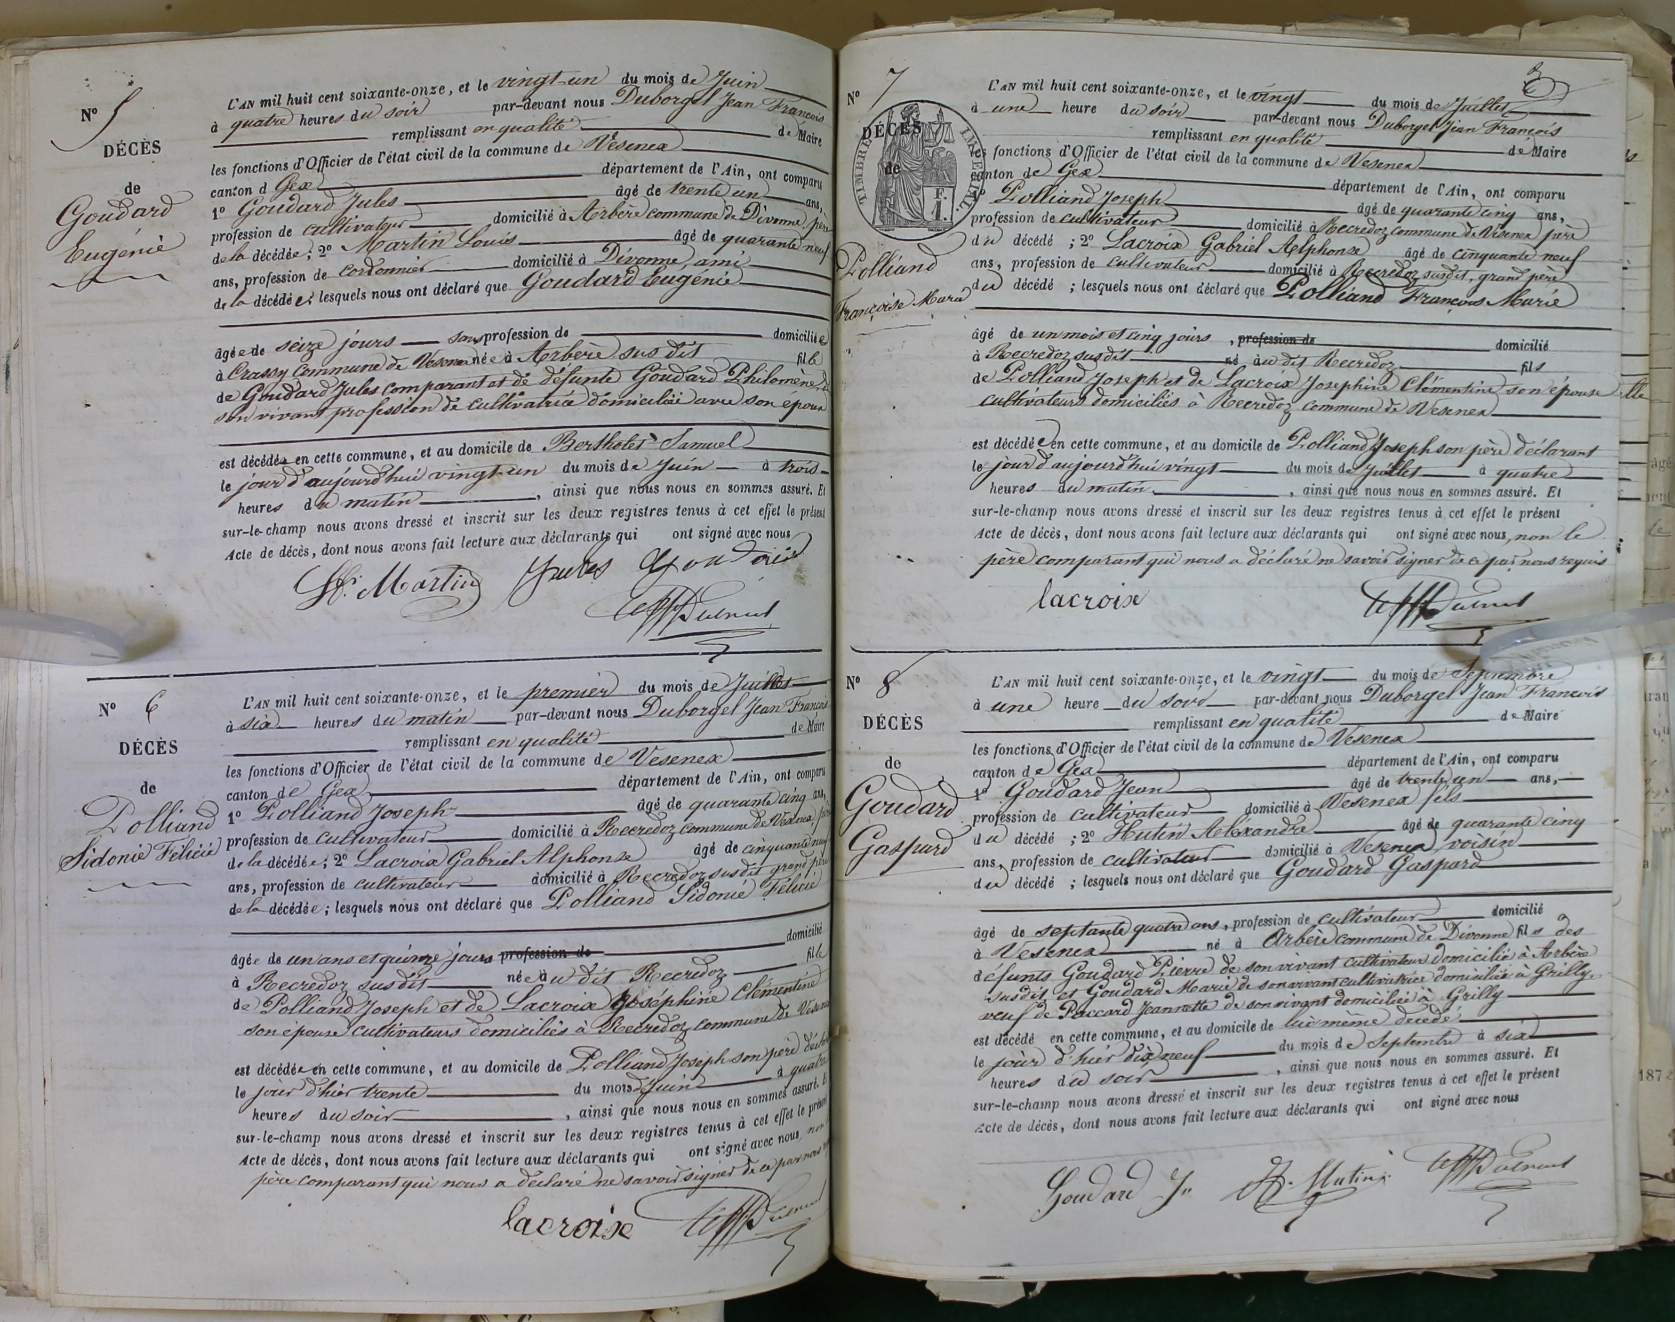 N° 5
DÉCÈS
de
Goudard
Eugénie
L'AN mil huit cent soixante-onze, et le vingt-un du mois de Juin
à quatre heures du soir par-devant nous Duborgel Jean François
remplissant en qualité de Maire
les fonctions d'Officier de l'état civil de la commune de Vesenex
canton d Gex département de l'Ain, ont comparu
1° Goudard Jules âgé de trente un ans,
profession de cultivateur domicilié à Arbère commune de Divonne, père
de la décédée; 2° Martin Louis âgé de quarante neuf
ans, profession de cordonnier domicilié à Divonne ami
de la décédée; lesquels nous ont déclaré que Goudard Eugénie
âgée de seize jours sans profession de domiciliée
à Crassy Commune de Vesenex née à Arbère sus dit fille
de Goudard Jules comparant et de défunte Goudard Philomène de
son vivant profession de cultivatrice domiciliée avec son époux
est décédée en cette commune, et au domicile de Bersholet Samuel
le jour d'aujourd'hui vingt-un du mois de Juin à trois
heures du matin, ainsi que nous nous en sommes assuré. Et
sur-le-champ nous avons dressé et inscrit sur les deux registres tenus à cet effet le présent
Acte de décès, dont nous avons fait lecture aux déclarants qui ont signé avec nous
Ls. Martin Jules Goudard
N° 6
DÉCÈS
de
Polliand
Sidonie Félicie
L'AN mil huit cent soixante-onze, et le premier du mois de Juillet
à six heures du matin par-devant nous Duborgel Jean François
remplissant en qualité de Maire
les fonctions d'Officier de l'état civil de la commune de Vesenex
canton de Gex département de l'Ain, ont comparu
1° Polliand Joseph âgé de quarante cinq ans,
profession de cultivateur domicilié à Recredoz commune de Vesenex père
de la décédée; 2° Lacroix Gabriel Alphonse âgé de cinquante neuf
ans, profession de cultivateur domicilié à Recredoz susdit grand père
de la décédée; lesquels nous ont déclaré que Polliand Sidonie Félicie
âgée de un ans et quinze jours profession de domicilié
à Recredoz susdit née à u dit Recredoz fille
de Polliand Joseph et de Lacroix Joséphine Clémentine
son épouse cultivateurs domiciliés à Recredoz commune de Vesenex
est décédée en cette commune, et au domicile de Polliand Joseph son père déclarant
le jour d'hier trente du mois Juin à quatre
heures du soir, ainsi que nous nous en sommes assuré. Et
sur-le-champ nous avons dressé et inscrit sur les deux registres tenus à cet effet le présent
Acte de décès, dont nous avons fait lecture aux déclarants qui ont signé avec nous, non le
père comparant qui nous a déclaré ne savoir signer de ce par nous
lacroix
N° 7
DÉCÈS
de
TIMBRE IMPERIAL
F. 1.
Polliand
Françoise Marie
L'AN mil huit cent soixante-onze, et le vingt du mois de Juillet
à une heure du soir par-devant nous Duborgel Jean François
remplissant en qualité de Maire
fonctions d'Officier de l'état civil de la commune de Vesenex
canton de Gex département de l'Ain, ont comparu
1° Polliand Joseph âgé de quarante cinq ans,
profession de cultivateur domicilié à Recredoz commune de Vesenex père
du décédé; 2° Lacroix Gabriel Alphonse âgé de cinquante neuf
ans, profession de cultivateur domicilié à Recredoz susdit, grand père
du décédé; lesquels nous ont déclaré que Polliand François Marie
âgé de un mois et cinq jours, profession de domicilié
à Recredoz susdit né àu dit Recredoz fils
de Polliand Joseph et de Lacroix Joséphine Clémentine son épouse
cultivateurs domiciliés à Recredoz commune de Vesenex
est décédé en cette commune, et au domicile de Polliand Joseph son père déclarant
le jour d'aujourd'hui vingt du mois de Juillet à quatre
heures du matin, ainsi que nous nous en sommes assuré. Et
sur-le-champ nous avons dressé et inscrit sur les deux registres tenus à cet effet le présent
Acte de décès, dont nous avons fait lecture aux déclarants qui ont signé avec nous, non le
père comparant qui nous a déclaré ne savoir signer de ce par nous requis
lacroix
N° 8
DÉCÈS
de
Goudard
Gaspard
L'AN mil huit cent soixante-onze, et le vingt du mois de Septembre
à une heure du soir par-devant nous Duborgel Jean François
remplissant en qualité de Maire
les fonctions d'Officier de l'état civil de la commune de Vesenex
canton de Gex département de l'Ain, ont comparu
1° Goudard Jean âgé de trente un ans,
profession de cultivateur domicilié à Vesenex fils
du décédé; 2° Hutin Alexandre âgé de quarante cinq
ans, profession de cultivateur domicilié à Vesenex, voisin
du décédé; lesquels nous ont déclaré que Goudard Gaspard
âgé de septante quatre ans, profession de cultivateur domicilié
à Vesenex né à Arbère commune de Divonne fils des
défunts Goudard Pierre de son vivant cultivateur domicilié à Arbère
susdit et Goudard Marie de son vivant cultivatrice domiciliée à Grilly,
veuf de Paccard Jeannette de son vivant domiciliée à Grilly
est décédé en cette commune, et au domicile de lui même décédé,
le jour d'hier dix neuf du mois de Septembre à six
heures du soir, ainsi que nous nous en sommes assuré. Et
sur-le-champ nous avons dressé et inscrit sur les deux registres tenus à cet effet le présent
Acte de décès, dont nous avons fait lecture aux déclarants qui ont signé avec nous
Goudard Jn A. Hutin
187